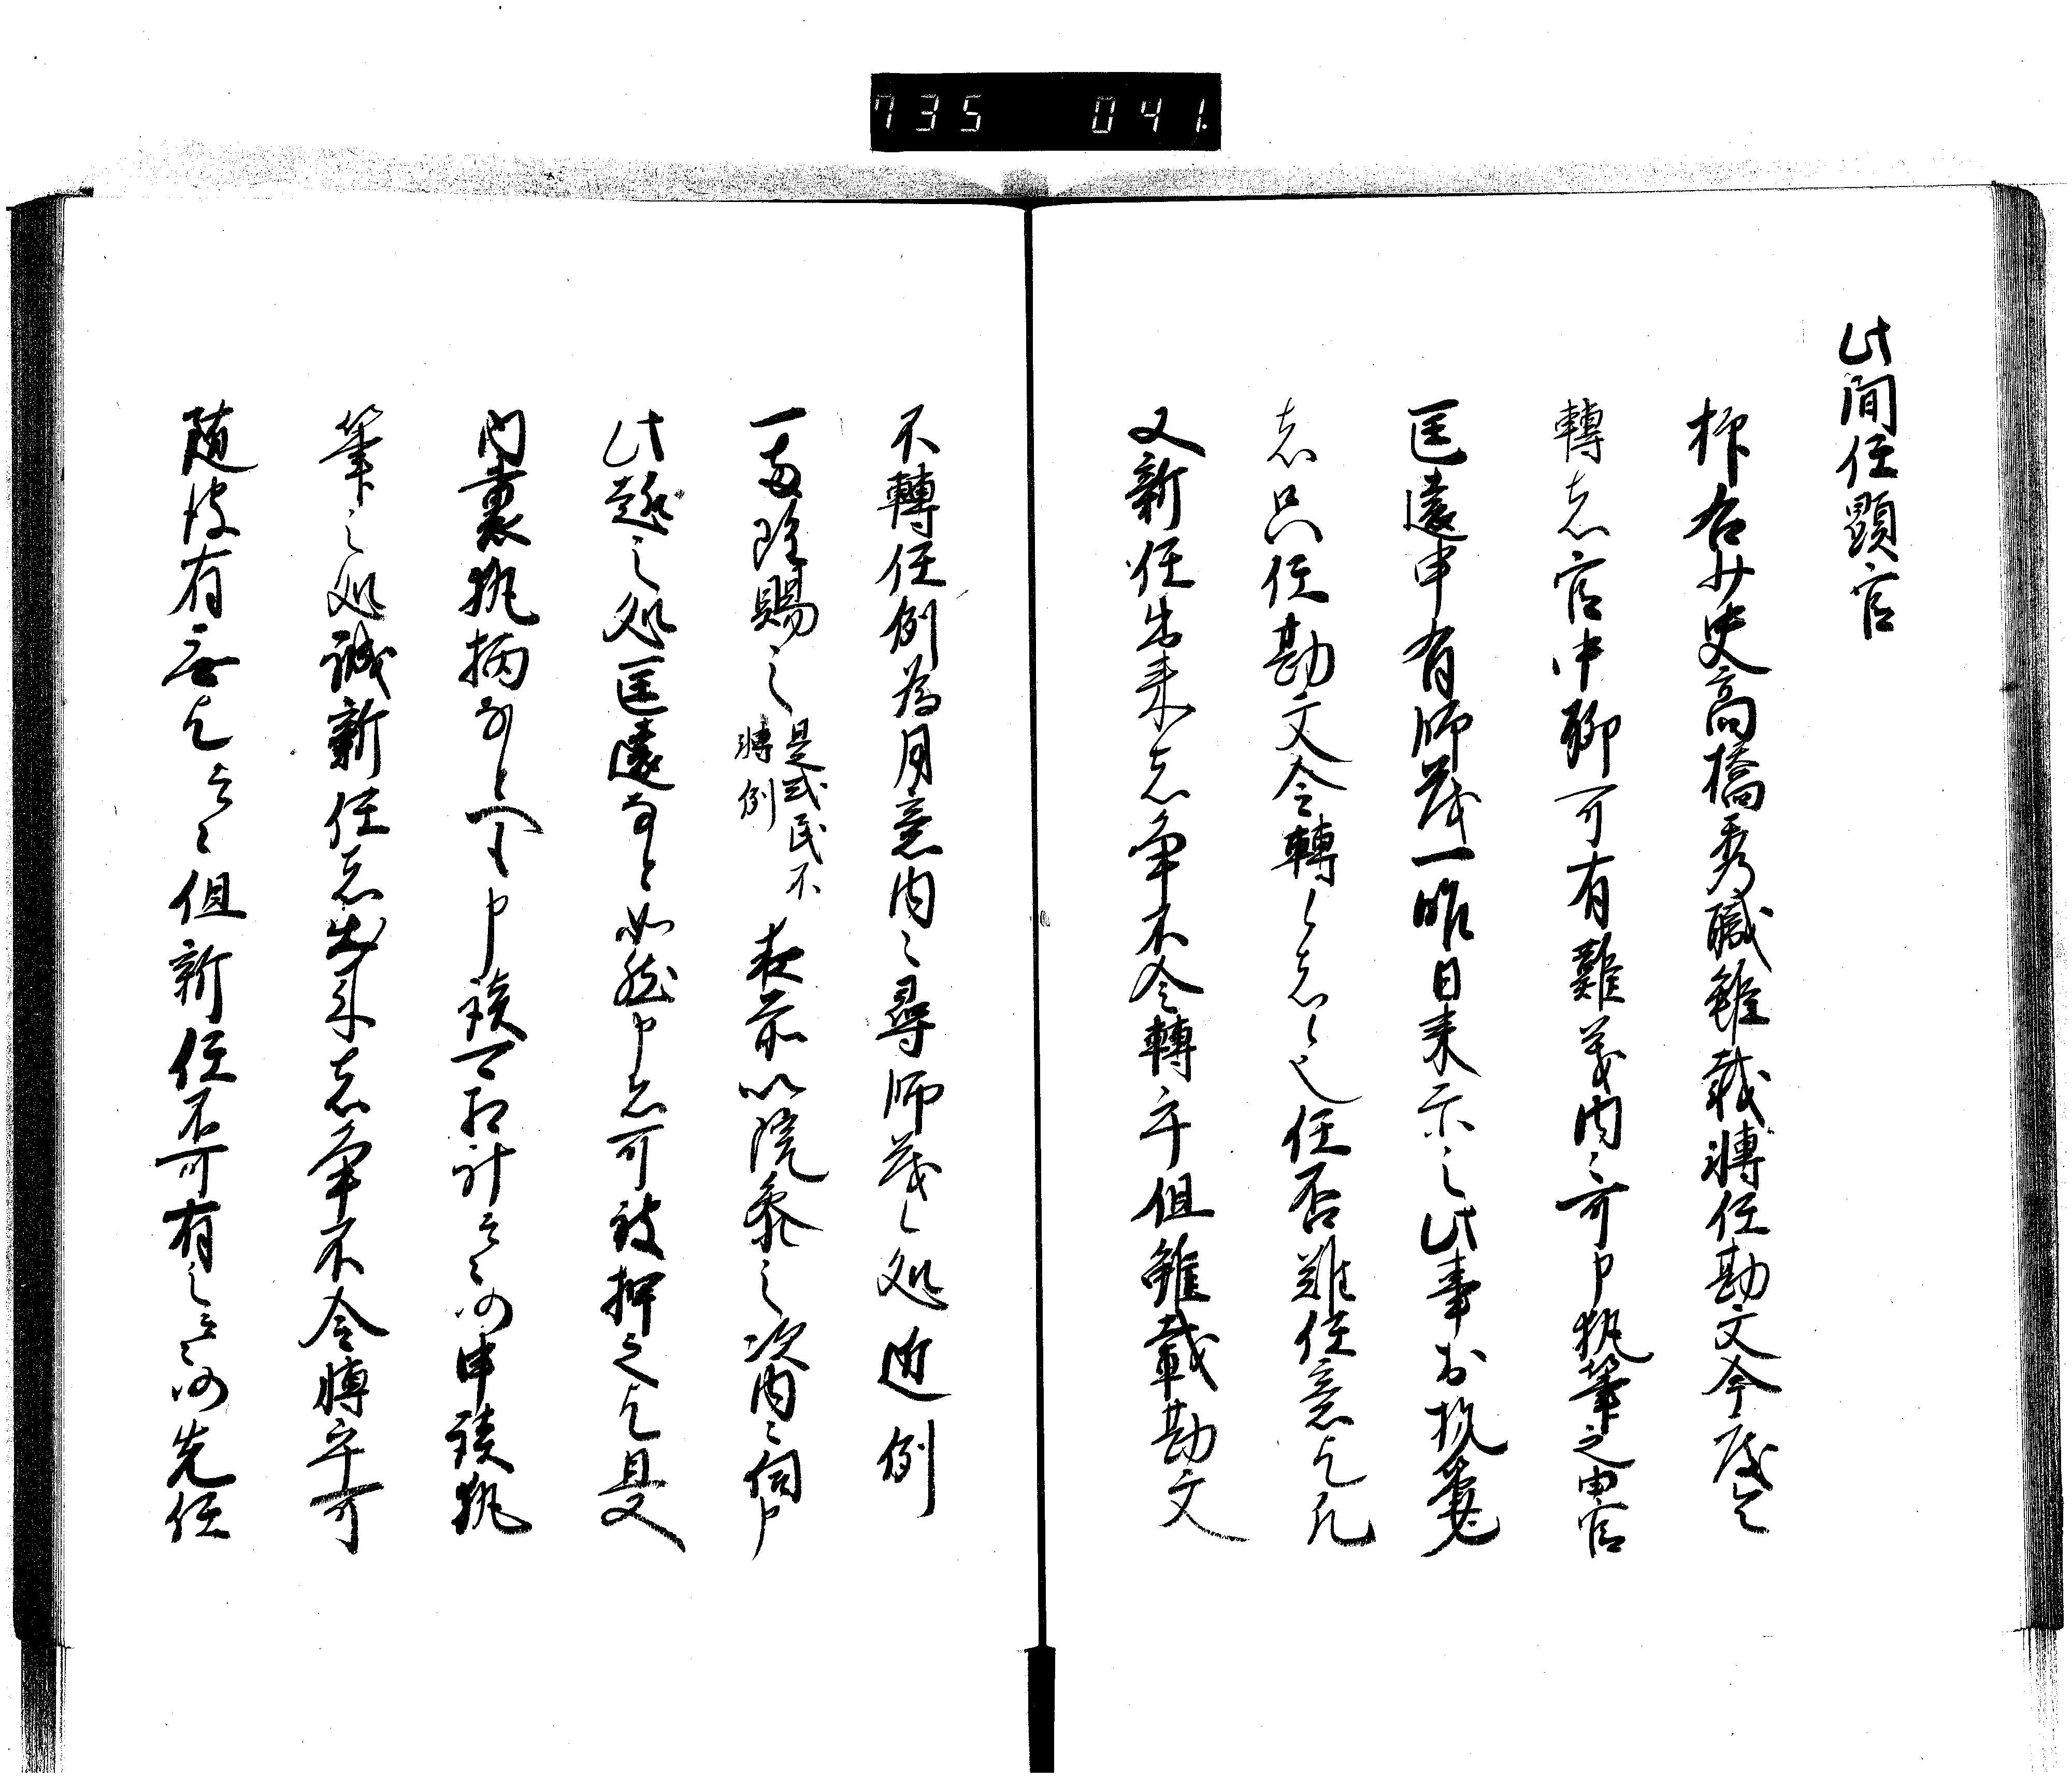 735 041
此間任顕官
抑右少史高橋秀職雖載轉任勘文今度
轉者官中聊可有難義内々可申執筆之由官
匡遠申有師茂一昨日来示之此事於執筆
者只任勘文令轉々者也任否難任意乎凡
又新任出来者争不令轉乎但雖載勘文
不轉任例為用意内々尋師茂之処近例
一両注賜之是式民不
轉例夜前以院参之次内々伺申
此趣之処匡遠如然申者可被押之乎且又
内裏執柄申談可相計云々仍申談執
筆之処誠新任者出来者争不令轉乎可
随彼有無乎云々但新任不可有之云々仍先任